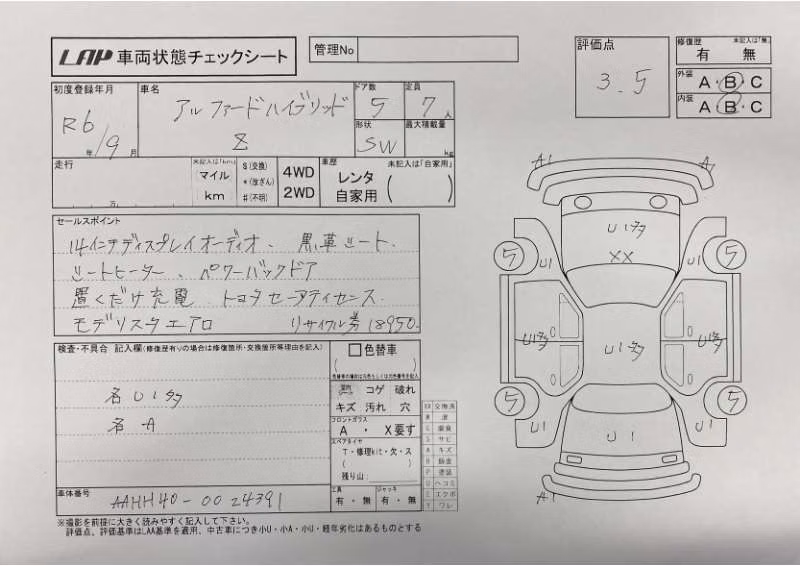 LAP 車両状態チェックシート
管理No
評価点
3.5
修復歴 未記入は「無」
有 無
外装 A・B・C
内装 A・B・C
初度登録年月
R6年/9月
車名
アルファードハイブリッド
Z
ドア数
5
定員
7人
形状
SW
最大積載量
kg
走行
万
未記入は「km」
マイル
km
$(交換)
*(改ざん)
#(不明)
4WD
2WD
車歴 未記入は「自家用」
レンタ
自家用
( )
セールスポイント
14インチディスプレイオーディオ、黒革シート、
シートヒーター、パワーバックドア
置くだけ充電 トヨタセーフティセンス
モデリスタエアロ リサイクル券 18950.
検査・不具合 記入欄(修復歴有りの場合は修復箇所・交換箇所等理由を記入)
各U1多
各-A
色替車
( )
コゲ 破れ
キズ 汚れ 穴
フロントガラス
A ・ X要す
スペアタイヤ
T・修理kit・欠・ス
( )
残り山:
工具
有・無
ジャッキ
有・無
車体番号
AAHH40-0024391
XX 交換済
W 波
S サビ
A キズ
P 塗装
U ヘコミ
E エクボ
Y ワレ
※撮影を前提に大きく読みやすく記入して下さい。
評価点、評価基準はLAA基準を適用、中古車につき小U・小A・小U・経年劣化はあるものとする
A1
A
U1多
XX
5
5
U1
U1
U1多
U1多
U1多
5
5
U1
U1
U1
A1